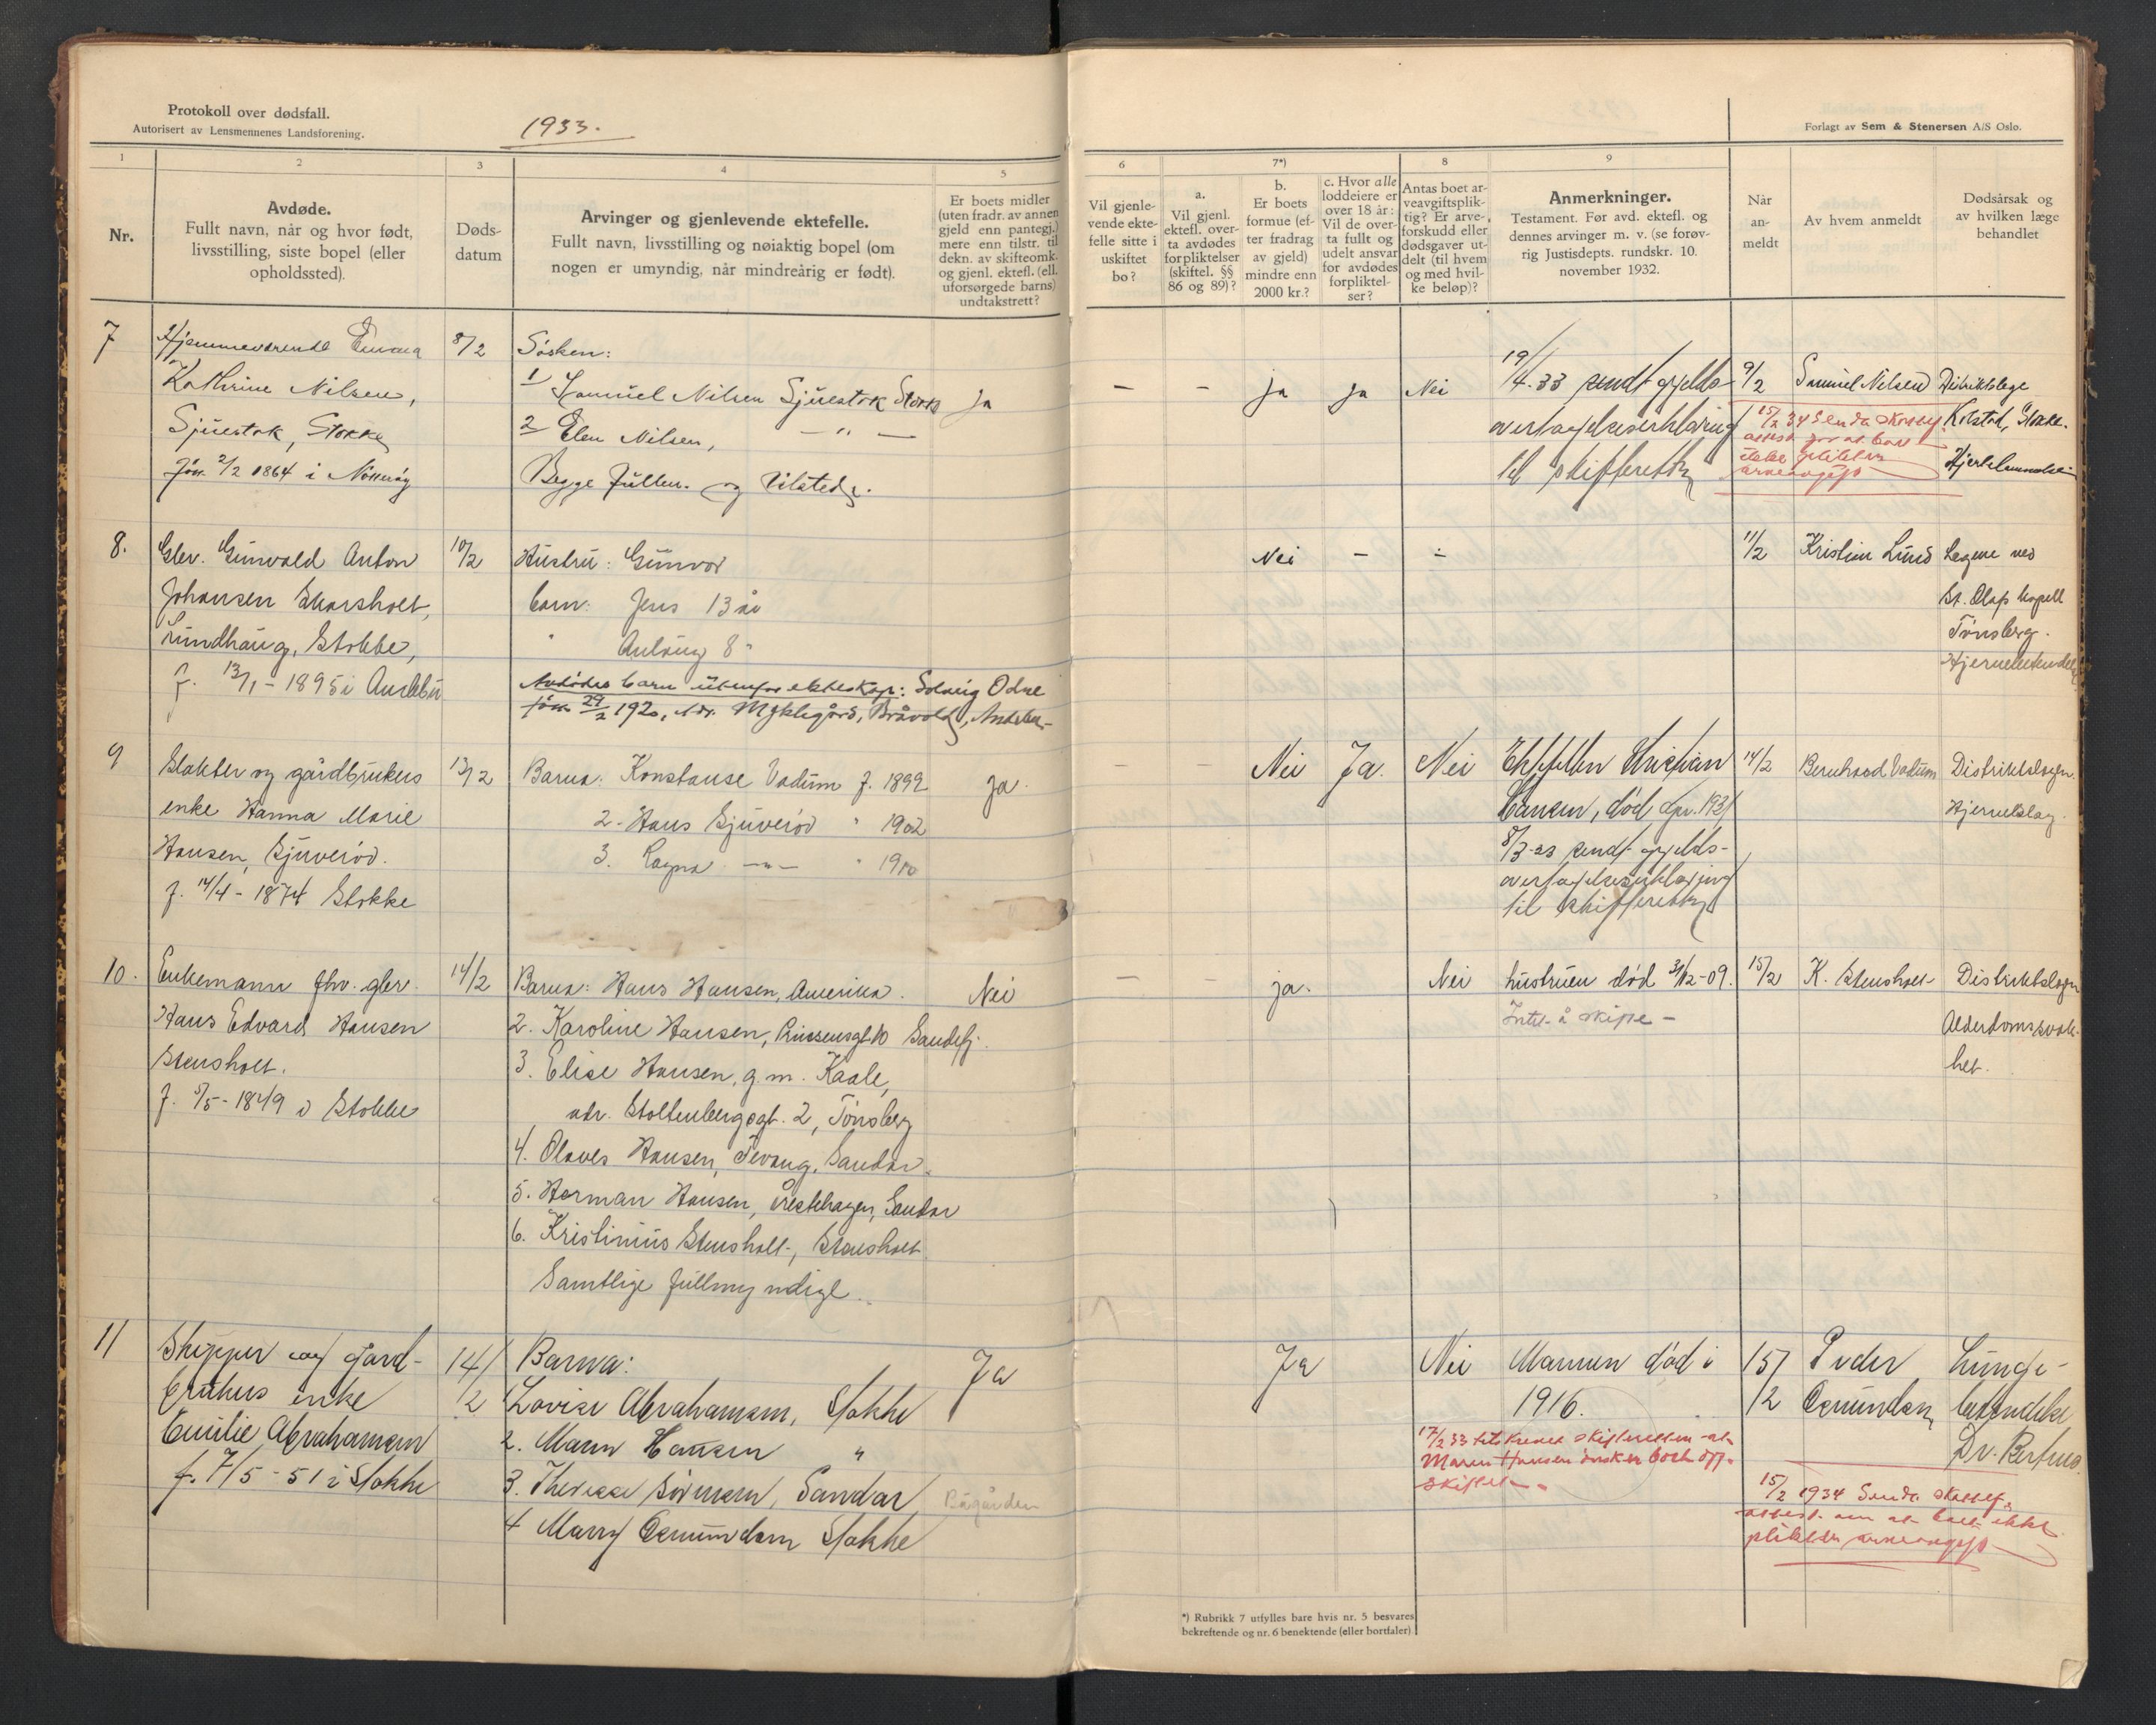 Protokoll over dødsfall.
Autorisert av Lensmennenes Landsforening.
1933.
Forlagt av Sem & Stenersen A/S Oslo.
1
2
3
4
5
6
7*)
8
9
Nr.
Avdøde.
Fullt navn, når og hvor født,
livsstilling, siste bopel (eller
opholdssted).
Døds-
datum
Arvinger og gjenlevende ektefelle.
Fullt navn, livsstilling og nøiaktig bopel (om
nogen er umyndig, når mindreårig er født).
Er boets midler
(uten fradr. av annen
gjeld enn pantegj.)
mere enn tilstr. til
dekn. av skifteomk.
og gjenl. ektefl. (ell.
uforsørgede barns)
undtakstrett?
Vil gjenle-
vende ekte-
felle sitte i
uskiftet
bo?
a.
Vil gjenl.
ektefl. over-
ta avdødes
forpliktelser
(skiftel. §§
86 og 89)?
b.
Er boets
formue (ef-
ter fradrag
av gjeld)
mindre enn
2000 kr.?
c. Hvor alle
loddeiere er
over 18 år:
Vil de over-
ta fullt og
udelt ansvar
for avdødes
forpliktel-
ser?
Antas boet ar-
veavgiftsplik-
tig? Er arve-
forskudd eller
dødsgaver ut-
delt (til hvem
og med hvil-
ke beløp)?
Anmerkninger.
Testament. Før avd. ektefl. og
dennes arvinger m. v. (se forøv-
rig Justisdepts. rundskr. 10.
november 1932.
Når
an-
meldt
Av hvem anmeldt
Dødsårsak og
av hvilken læge
behandlet
7
Hjemmeværende Emma
Kathrine Nilsen,
Sjuestok, Stokke
født 2/2 1864 i Nøtterøy
8/2
Søsken:
1 Samuel Nilsen Sjuestok Stokke
2 Elen Nilsen, — " —
Begge fullm. og tilsted.
ja
— — ja ja Nei
19/4.33 sendt gjelds-
overtagelseserklæring
til skifteretten
9/2
Samuel Nilsen
15/2 34 Senda skattef.
attest for at boet
ikke plikter
arveavgift
Distriktslege
Kolstad, Stokke.
8.
Glev. Gunvald Anton
Johansen Skorsholt,
Sundhaug, Stokke,
f. 13/1 - 1895 i Andebu
10/2
Hustru: Gunvor
barn: Jens 13 år
" Aulaug 8 "
Avdødes barn utenfor ekteskap: Solveig Odne
født 29/2 1920, Adr. Myklegård, Bråvold, Andebu
Nei — ÷
11/2
Kristian Lund
Legene ved
St. Olafs kapell
Tønsberg.
9
Slakter og gårdbrukers
enke Hanna Marie
Hansen, Sjuverød.
f. 14/4 - 1874 Stokke
13/2
Barna: Konstanse Vadum f. 1899
2. Hans Sjuverød " 1902
3. Ragna — " — " 1910
Ja.
— — Nei Ja. Nei
Ektefellen Kristian
Hansen, død Apr. 1931
8/3-33 sendt gjelds-
overtagelseserklæring
til skifteretten
14/2
Bernhard Vadum
Distriktslegen.
Hjerneslag.
10.
Enkemann fhv. glev.
Hans Edvard Hansen
Stensholt.
f. 5/5 - 1849 i Stokke
14/2
Barna: Hans Hansen, Amerika.
2. Karoline Hansen, Prinsensgt. 10 Sandefj.
3. Elise Hansen, g. m. Kaale,
adr. Stoltenbergsgt. 2, Tønsberg
4. Olaves Hansen, Tevang, Sandar.
5. Herman Hansen, Vestehagen, Sandar
6. Kristinius Stensholt, Stensholt
Samtlige fullmyndige.
Nei
— — ja. Nei
hustruen død 31/12-09.
Intet å skifte —
15/2
K. Stensholt
Distriktslegen
Alderdomssvak-
het.
11
Skipper og gård-
brukers enke
Emilie Abrahamsen
f. 7/5 - 51 i Stokke
14/2
Barna:
Lovise Abrahamsen, Stokke
2. Maren Hansen "
3. Therese Sørensen, Sandar
4 Marry Osmundsen Stokke
Ja
Ja
Nei
Mannen død i
1916.
17/2 33 tilskrevet skifteretten at
Maren Hansen ønsker boet off.
skiftet.
15/2
Peder
Osmundsen
Lunge-
betendelse
Dr. Bertnes
15/2 1934 Senda skattef.
attest om at boet ikke
plikter arveavgift
*) Rubrikk 7 utfylles bare hvis nr. 5 besvares
bekreftende og nr. 6 benektende (eller bortfaler).